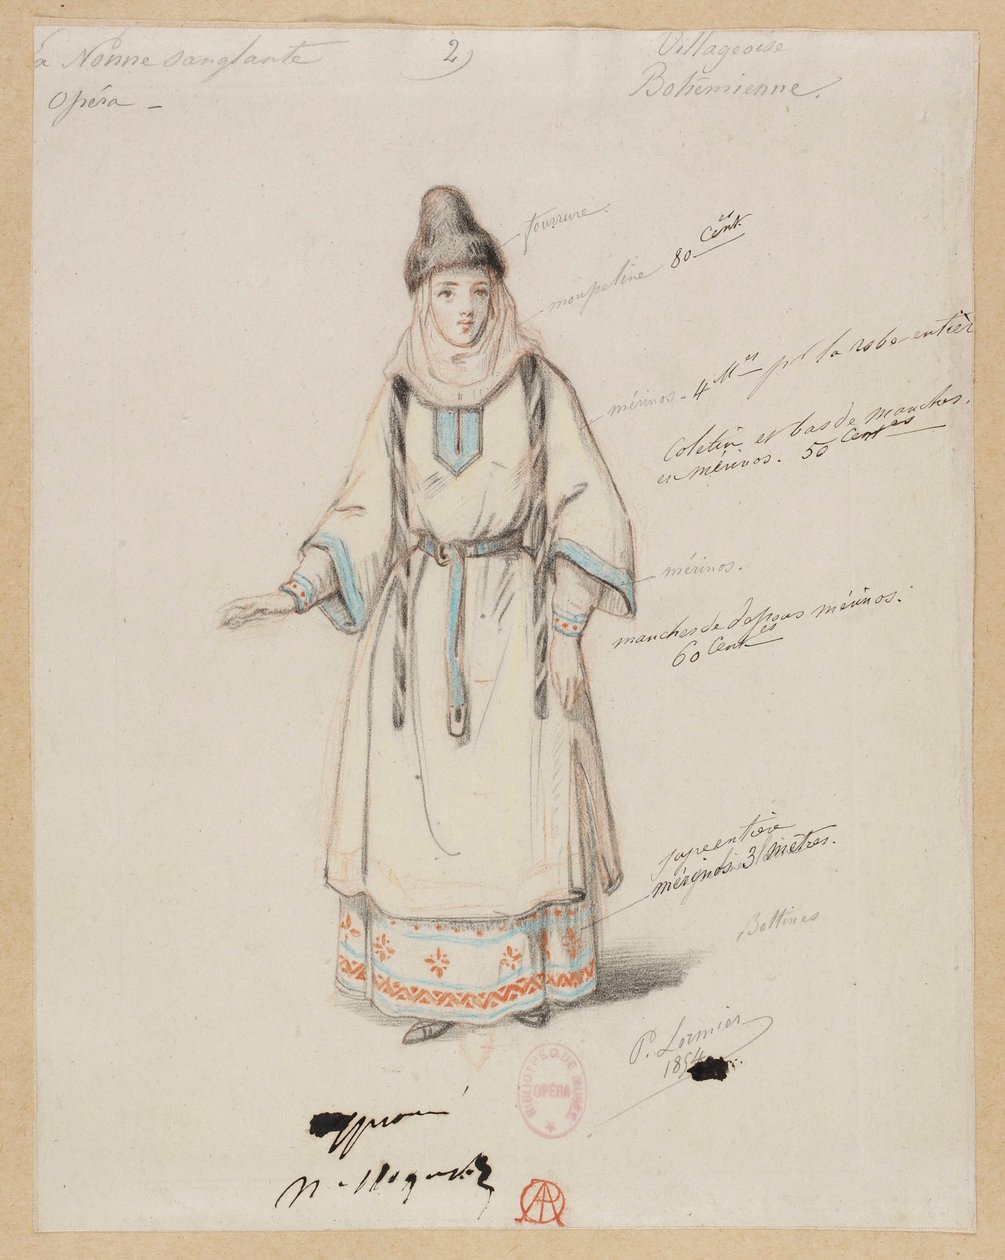 a Nonne sanglante
Opéra -
2)
Villageoise
Bohémienne.
fourrure.
mousseline 80 cent
mérinos - 4 Mes pr la robe entièr
Coletin et bas de manches.
en mérinos. 50 Centes
mérinos.
manches de dessous mérinos.
60 Centes
jupe entière
mérinos 3 mètres.
Bottines
P. Lormier
1854
BIBLIOTHEQUE MUSEE
OPÉRA